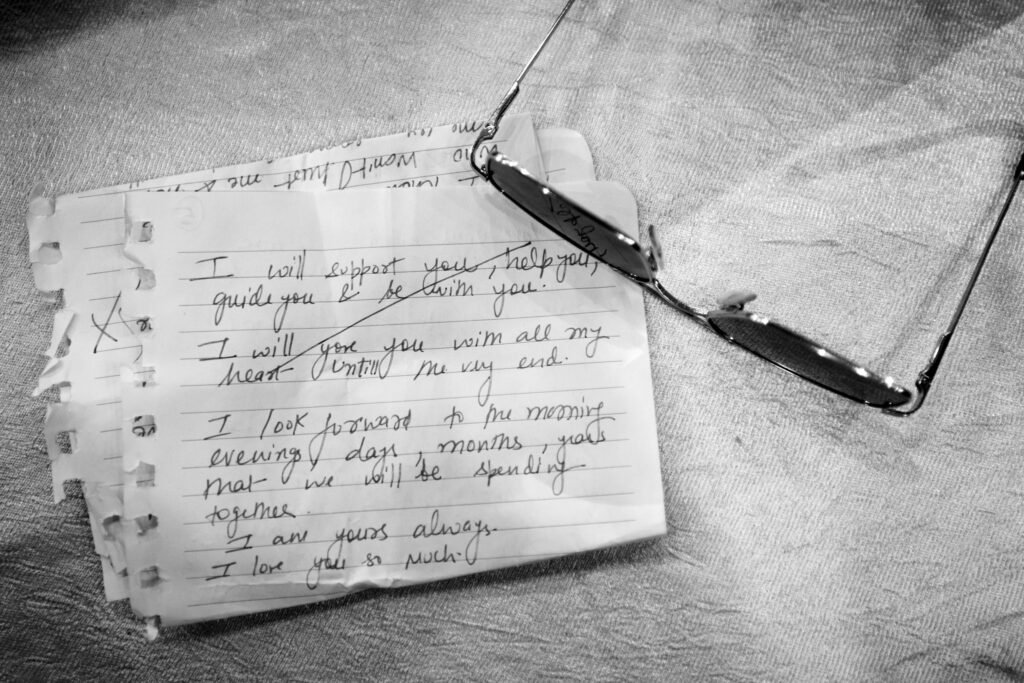 won't hurt me &
I will support you, help you,
guide you & be with you.
I will you with all my
heart untill the very end.
I look forward to the morning
evenings, days, months, years
that we will be spending
together.
I am yours always.
I love you so much.